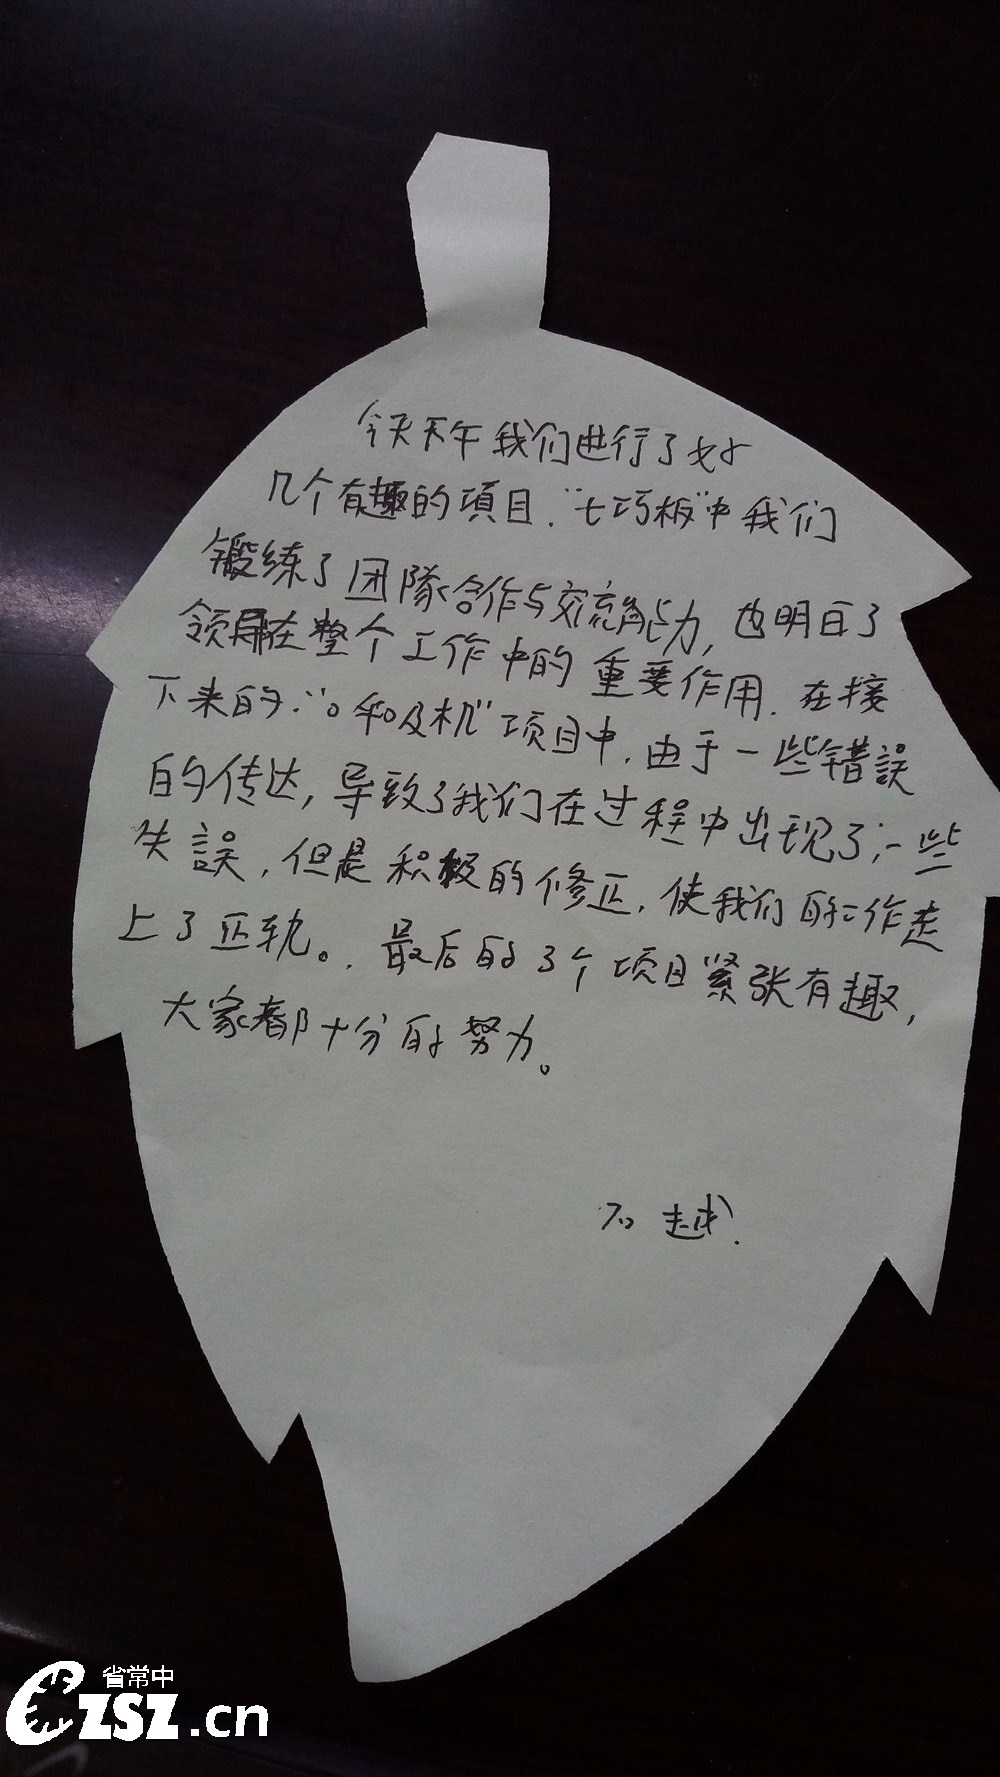 今天下午我们进行了好
几个有趣的項目.“七巧板”中我们
锻练了团隊合作与交流能力,也明白了
领导在整个工作中的重要作用.在接
下来的:“  机”项目中,由于一些错誤
的传达,导致了我们在过程中出现了,一些
失誤,但是积极的修正,使我们的工作走
上了正轨。.最后的3个项目紧张有趣,
大家都十分的努力。
石越.
省常中
CZSZ.cn